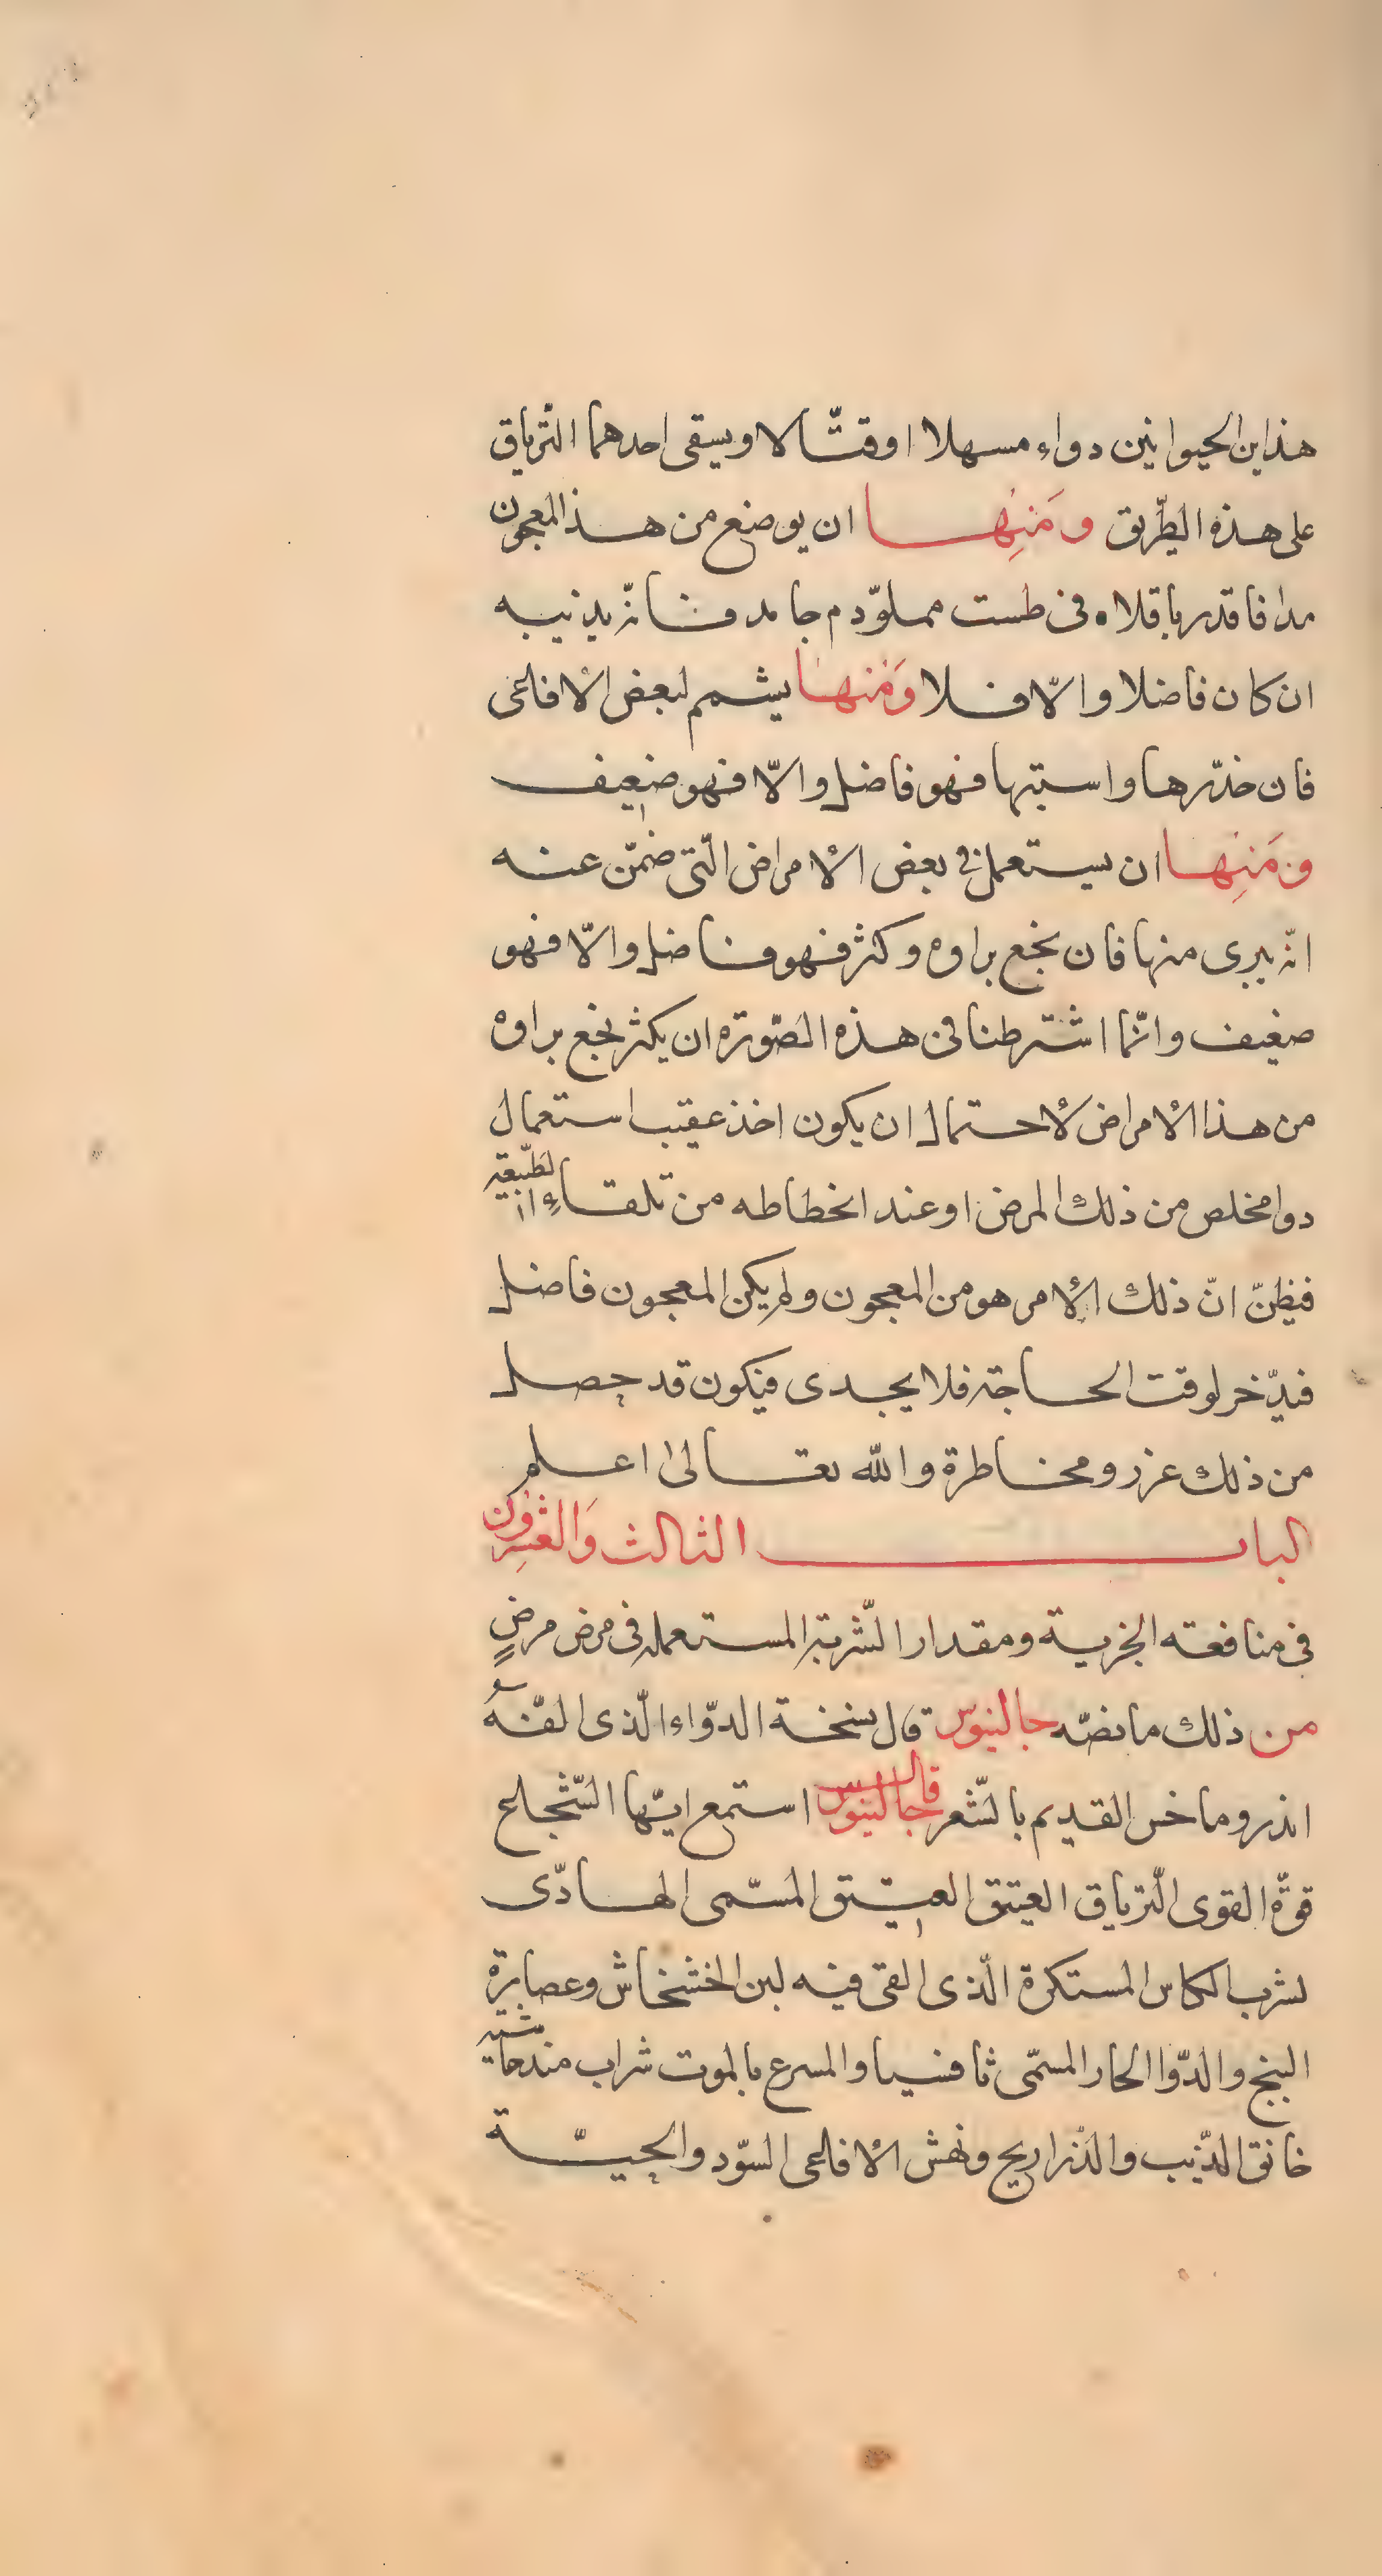 هذاين الحيوانين دواء مسهلا اوقتّالا ويسقى احدهما التّرياق
على هذه الطّريق ومَنِها ان يوضع من هذا المعجون
مدافا قدر باقلاه في طست مملوّ دم جامد فانّه يذيبه
ان كان فاضلا والّا فلا وَمنها يشمم لبعض الأفاعى
فان خدّرها واسبتها فهو فاضل والّا فهو ضعيف
ومَنِها ان يستعمل في بعض الأمراض الّتى ضمّن عنه
انّه يبرى منها فان نجع براوه وكثر فهو فاضل والّا فهو
ضعيف وانّما اشترطنا في هذه الصّورة ان يكثر نجع براوه
من هذا الأمراض لأحتمال ان يكون اخذ عقيب استعمال
دوا مخلص من ذلك المرض او عند انحطاطه من تلقاءِ الطّبيعة
فيظنّ انّ ذلك الأمر هو من المعجون ولم يكن المعجون فاضل
فيدّخر لوقت الحاجة فلا يجدى فيكون قد حصل
من ذلك غرر ومخاطرة والله تعالى اعلم
الباب الثالث وَالعشِرون
في منافعه الجزية ومقدار الشّربة المستعمله في مرض مرضٍ
من ذلك ما نصّه جالينوس قال نسخة الدوّاء الّذى الفّه
اندروماخس القديم بالشّعر قال جالينوس استمع ايّها الشّجاع
قوّة القوى التّرياق العيتق العيّتق المسّمى الهادّى
لشرب الكاس المستكرة الّذى القى فيه لبن الخشخاش وعصارة
البنج والدّوا الحار المسمّى ثافسيا والمسرع بالموت شراب
خانق الذّيب والذّراريح ونهش الأفاعى السّود والحيّة